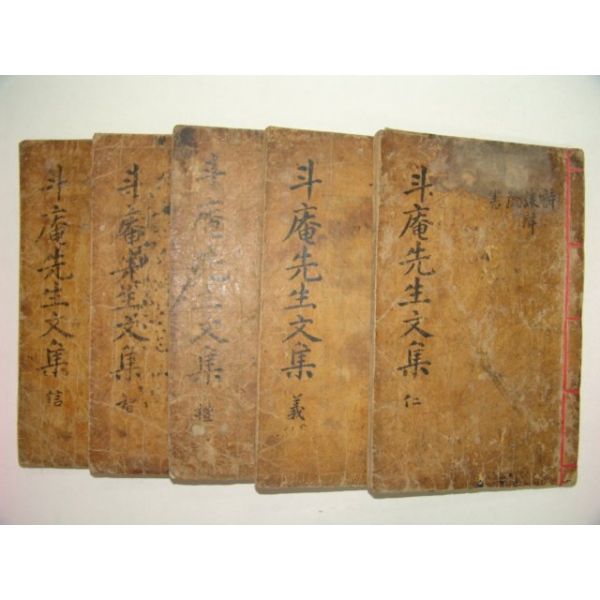 詩
書
斗庵先生文集 仁
斗庵先生文集 義
斗庵先生文集 禮
斗庵先生文集 智
斗庵先生文集 信